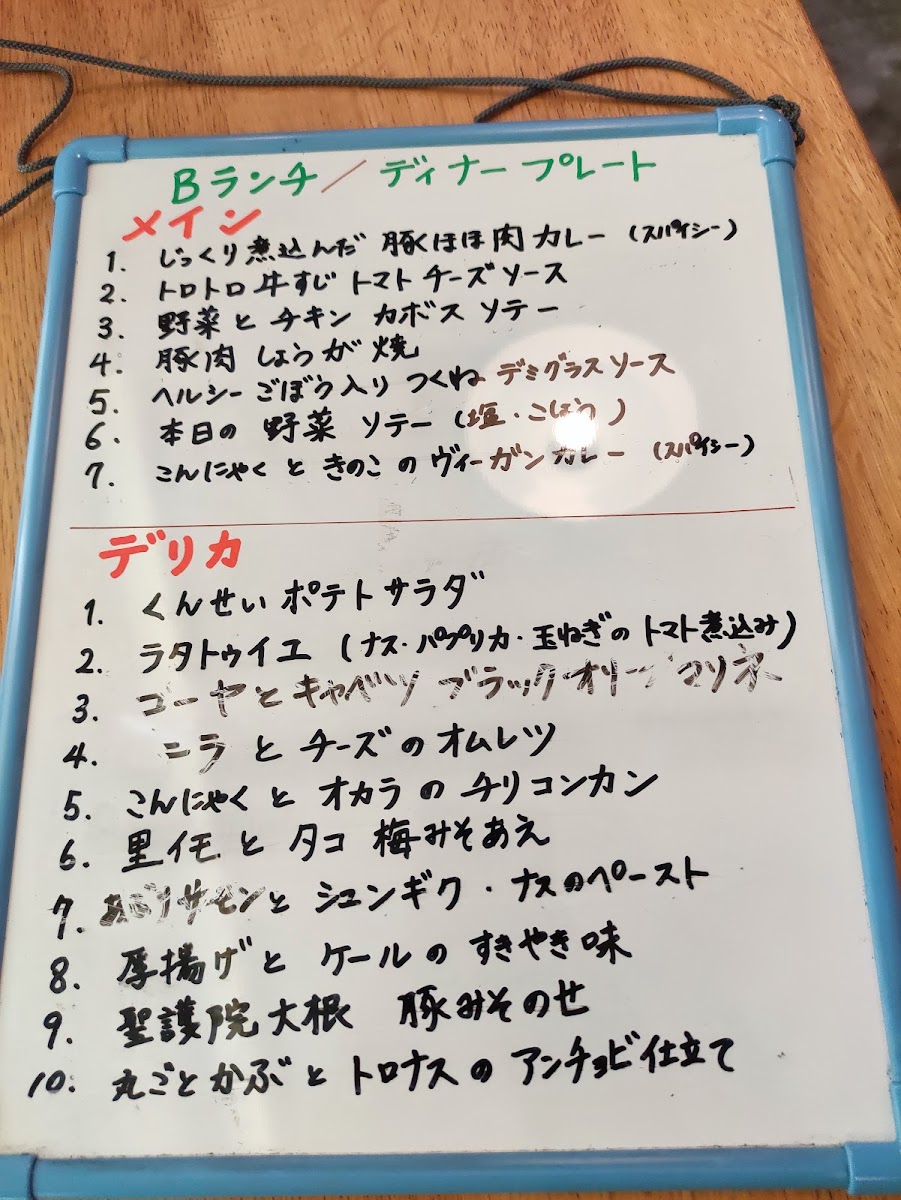 Bランチ / ディナープレート
メイン
1. じっくり煮込んだ 豚ほほ肉カレー (スパイシー)
2. トロトロ牛すじトマトチーズソース
3. 野菜とチキン カボスソテー
4. 豚肉しょうが焼
5. ヘルシーごぼう入りつくね デミグラスソース
6. 本日の 野菜 ソテー (塩・こしょう)
7. こんにゃくときのこのヴィーガンカレー (スパイシー)
デリカ
1. くんせいポテトサラダ
2. ラタトゥイユ (ナス・パプリカ・玉ねぎのトマト煮込み)
3. ゴーヤとキャベツ ブラックオリーブマリネ
4. ニラとチーズのオムレツ
5. こんにゃくとオカラのチリコンカン
6. 里イモとタコ 梅みそあえ
7. あぶりサーモンとシュンギク・ナスのペースト
8. 厚揚げとケールのすきやき味
9. 聖護院大根 豚みそのせ
10. 丸ごとかぶとトロナスのアンチョビ仕立て